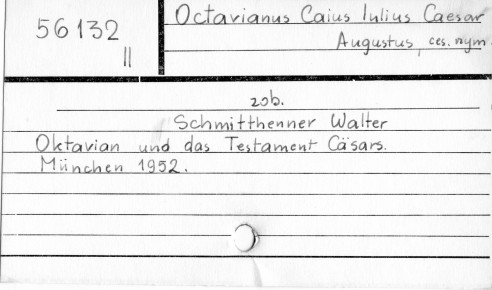 56132
II
Octavianus Caius Iulius Caesar
Augustus, ces. rzym.
zob.
Schmitthenner Walter
Oktavian und das Testament Cäsars.
München 1952.